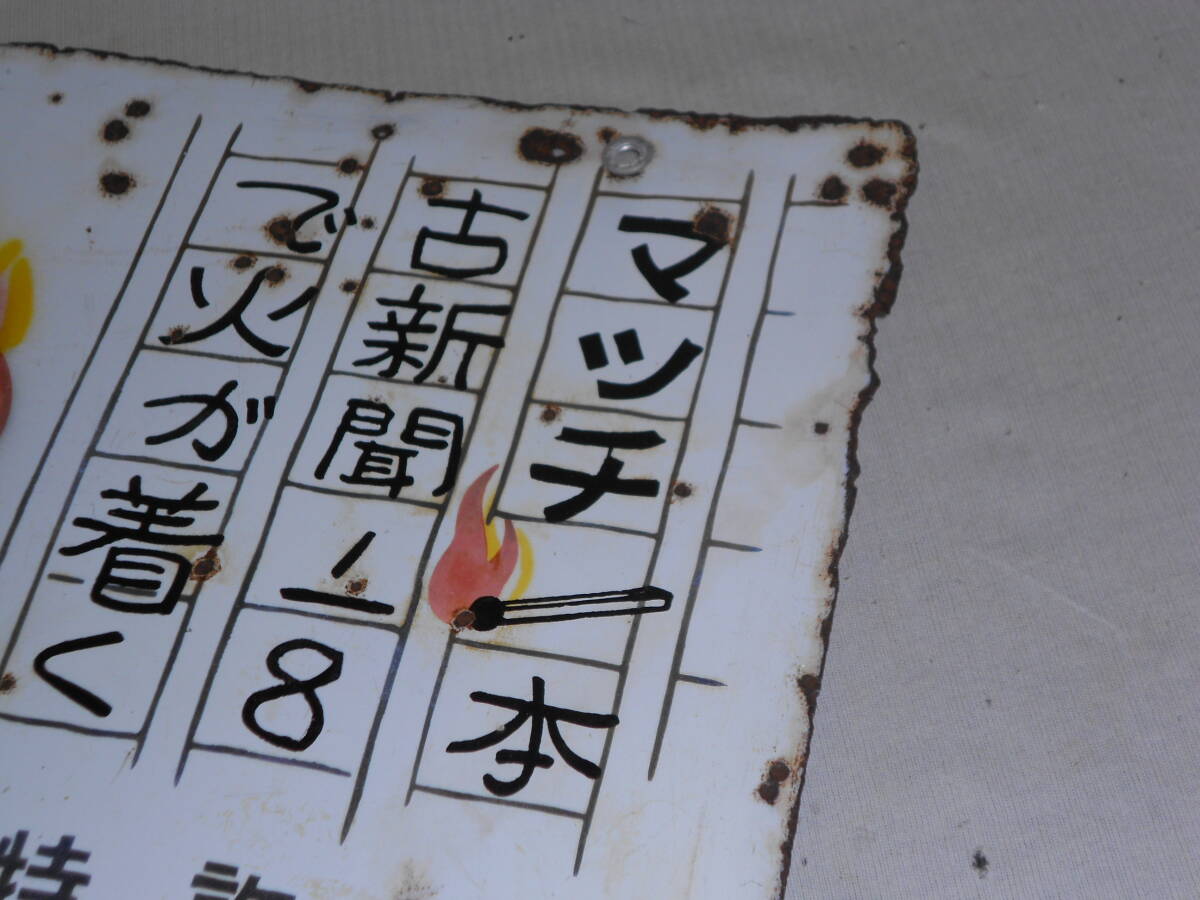 マッチ一本
古新聞1/8
で火が着く
特許